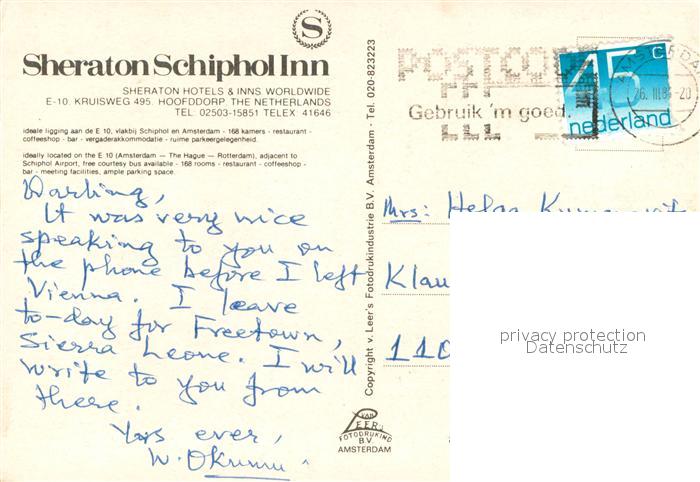 S
Sheraton Schiphol Inn
SHERATON HOTELS & INNS WORLDWIDE
E-10. KRUISWEG 495. HOOFDDORP. THE NETHERLANDS
TEL: 02503-15851 TELEX: 41646
ideale ligging aan de E 10, vlakbij Schiphol en Amsterdam - 168 kamers - restaurant -
coffeeshop - bar - vergaderakkommodatie - ruime parkeergelegenheid.
ideally located on the E 10 (Amsterdam — The Hague — Rotterdam), adjacent to
Schiphol Airport, free courtesy bus available - 168 rooms - restaurant - coffeeshop -
bar - meeting facilities, ample parking space.
Darling,
It was very nice
speaking to you on
the phone before I left
Vienna. I leave
to-day for Freetown,
Sierra Leone. I will
write to you from
there.
Yrs ever,
W. Okumu.
Copyright v. Leer's Fotodrukindustrie B.V. Amsterdam - Tel. 020-823223
VAN
LEER'S
FOTODRUKIND
B.V.
AMSTERDAM
POSTCODE
Gebruik 'm goed.
45 c
nederland
AMSTERDA
26. III.8
-20
Mrs: Helga
Klau
110
privacy protection
Datenschutz